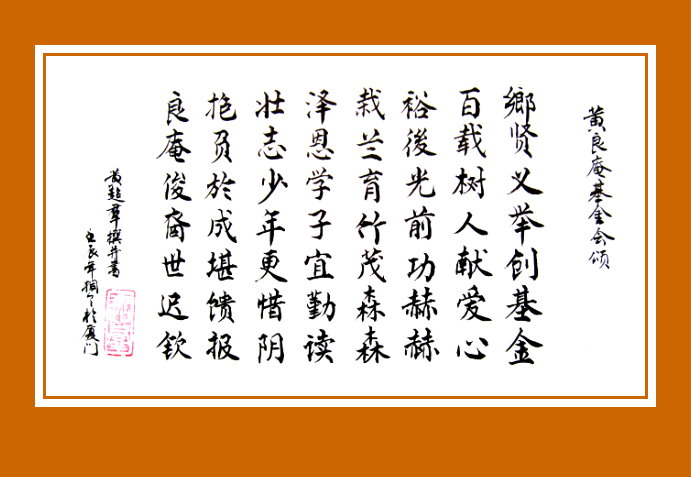 黄良庵基金会颂
鄉贤义举创基金
百载树人献爱心
裕後光前功赫赫
栽兰育竹茂森森
泽恩学子宜勤读
壮志少年更惜阴
抱负於成堪馈报
良庵俊裔世迟钦
黄超群撰并书
壬辰年桐月於厦门